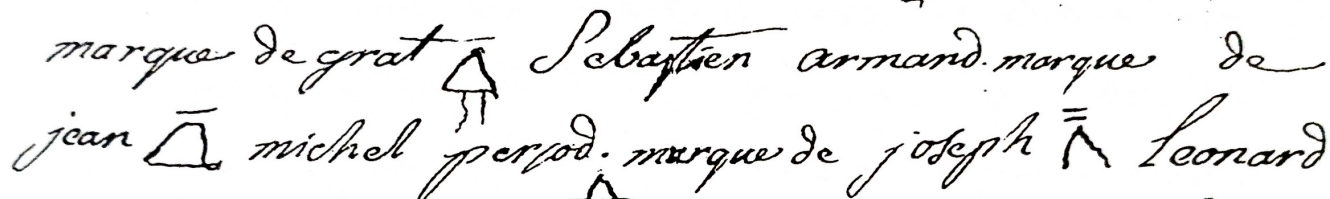 marque de grat Sebastien armand. marque de
jean michel perrod. marque de joseph leonard